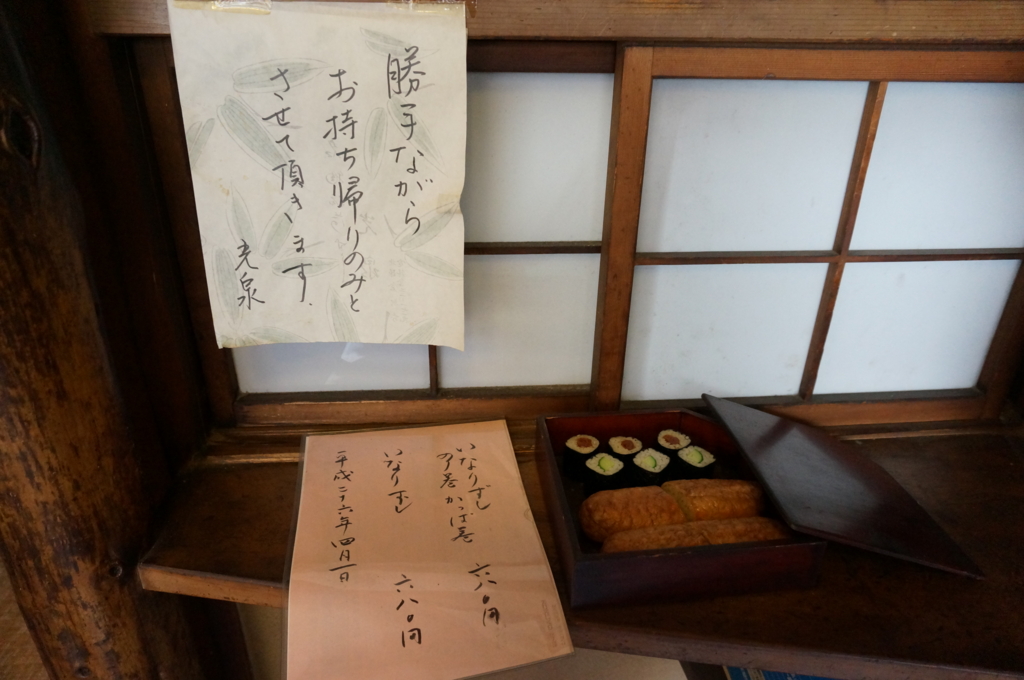 勝手ながら
お持ち帰りのみと
させて頂きます.
光泉
いなりずし
のり巻かっぱ巻
六八〇円
いなりずし
六八〇円
平成二十六年四月一日